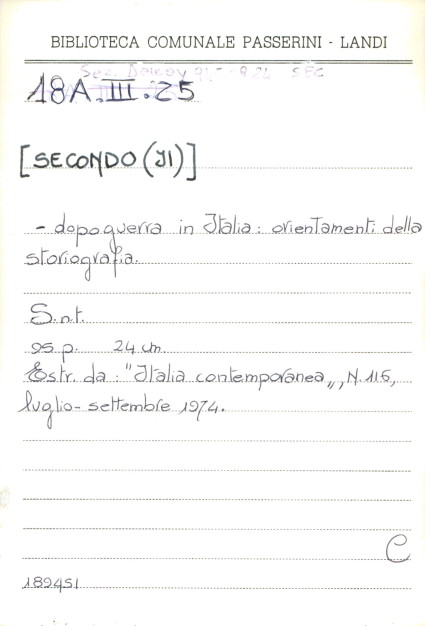 BIBLIOTECA COMUNALE PASSERINI - LANDI
18A.III.25
[SECONDO (Il)]
- dopoguerra in Italia: orientamenti della
storiografia.
S.n.t.
95 p. 24 cm.
Estr. da: "Italia contemporanea", N. 116,
luglio-settembre 1974.
C
189451